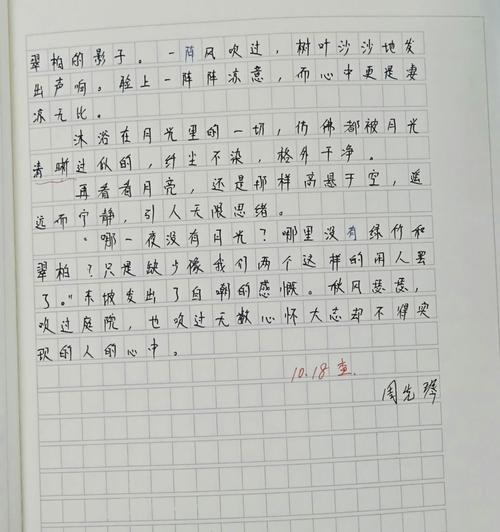 翠柏的影子。一阵风吹过，树叶沙沙地发
出声响。脸上一阵阵凉意，而心中更是凄
凉无比。
沐浴在月光里的一切，仿佛都被月光
清晰过似的，纤尘不染，格外干净。
再看看月亮，还是那样高悬于空，遥
远而宁静，引人无限思绪。
“哪一夜没有月光？哪里没有绿竹和
翠柏？只是缺少像我们两个这样的闲人罢
了。”东坡发出了自嘲的感慨。秋风瑟瑟，
吹过庭院，也吹过无数心怀大志却不得实
现的人的心中。
10.18 查
周先琴